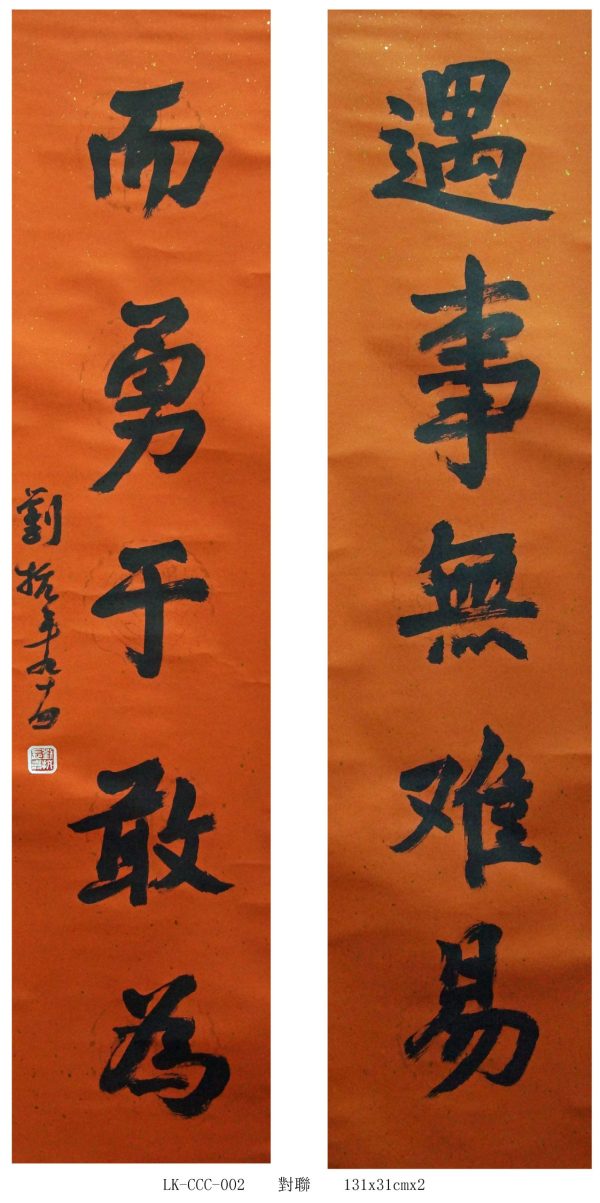 遇事無难易
而勇于敢為
劉抗年九十四
LK-CCC-002 對聯 131x31cmx2